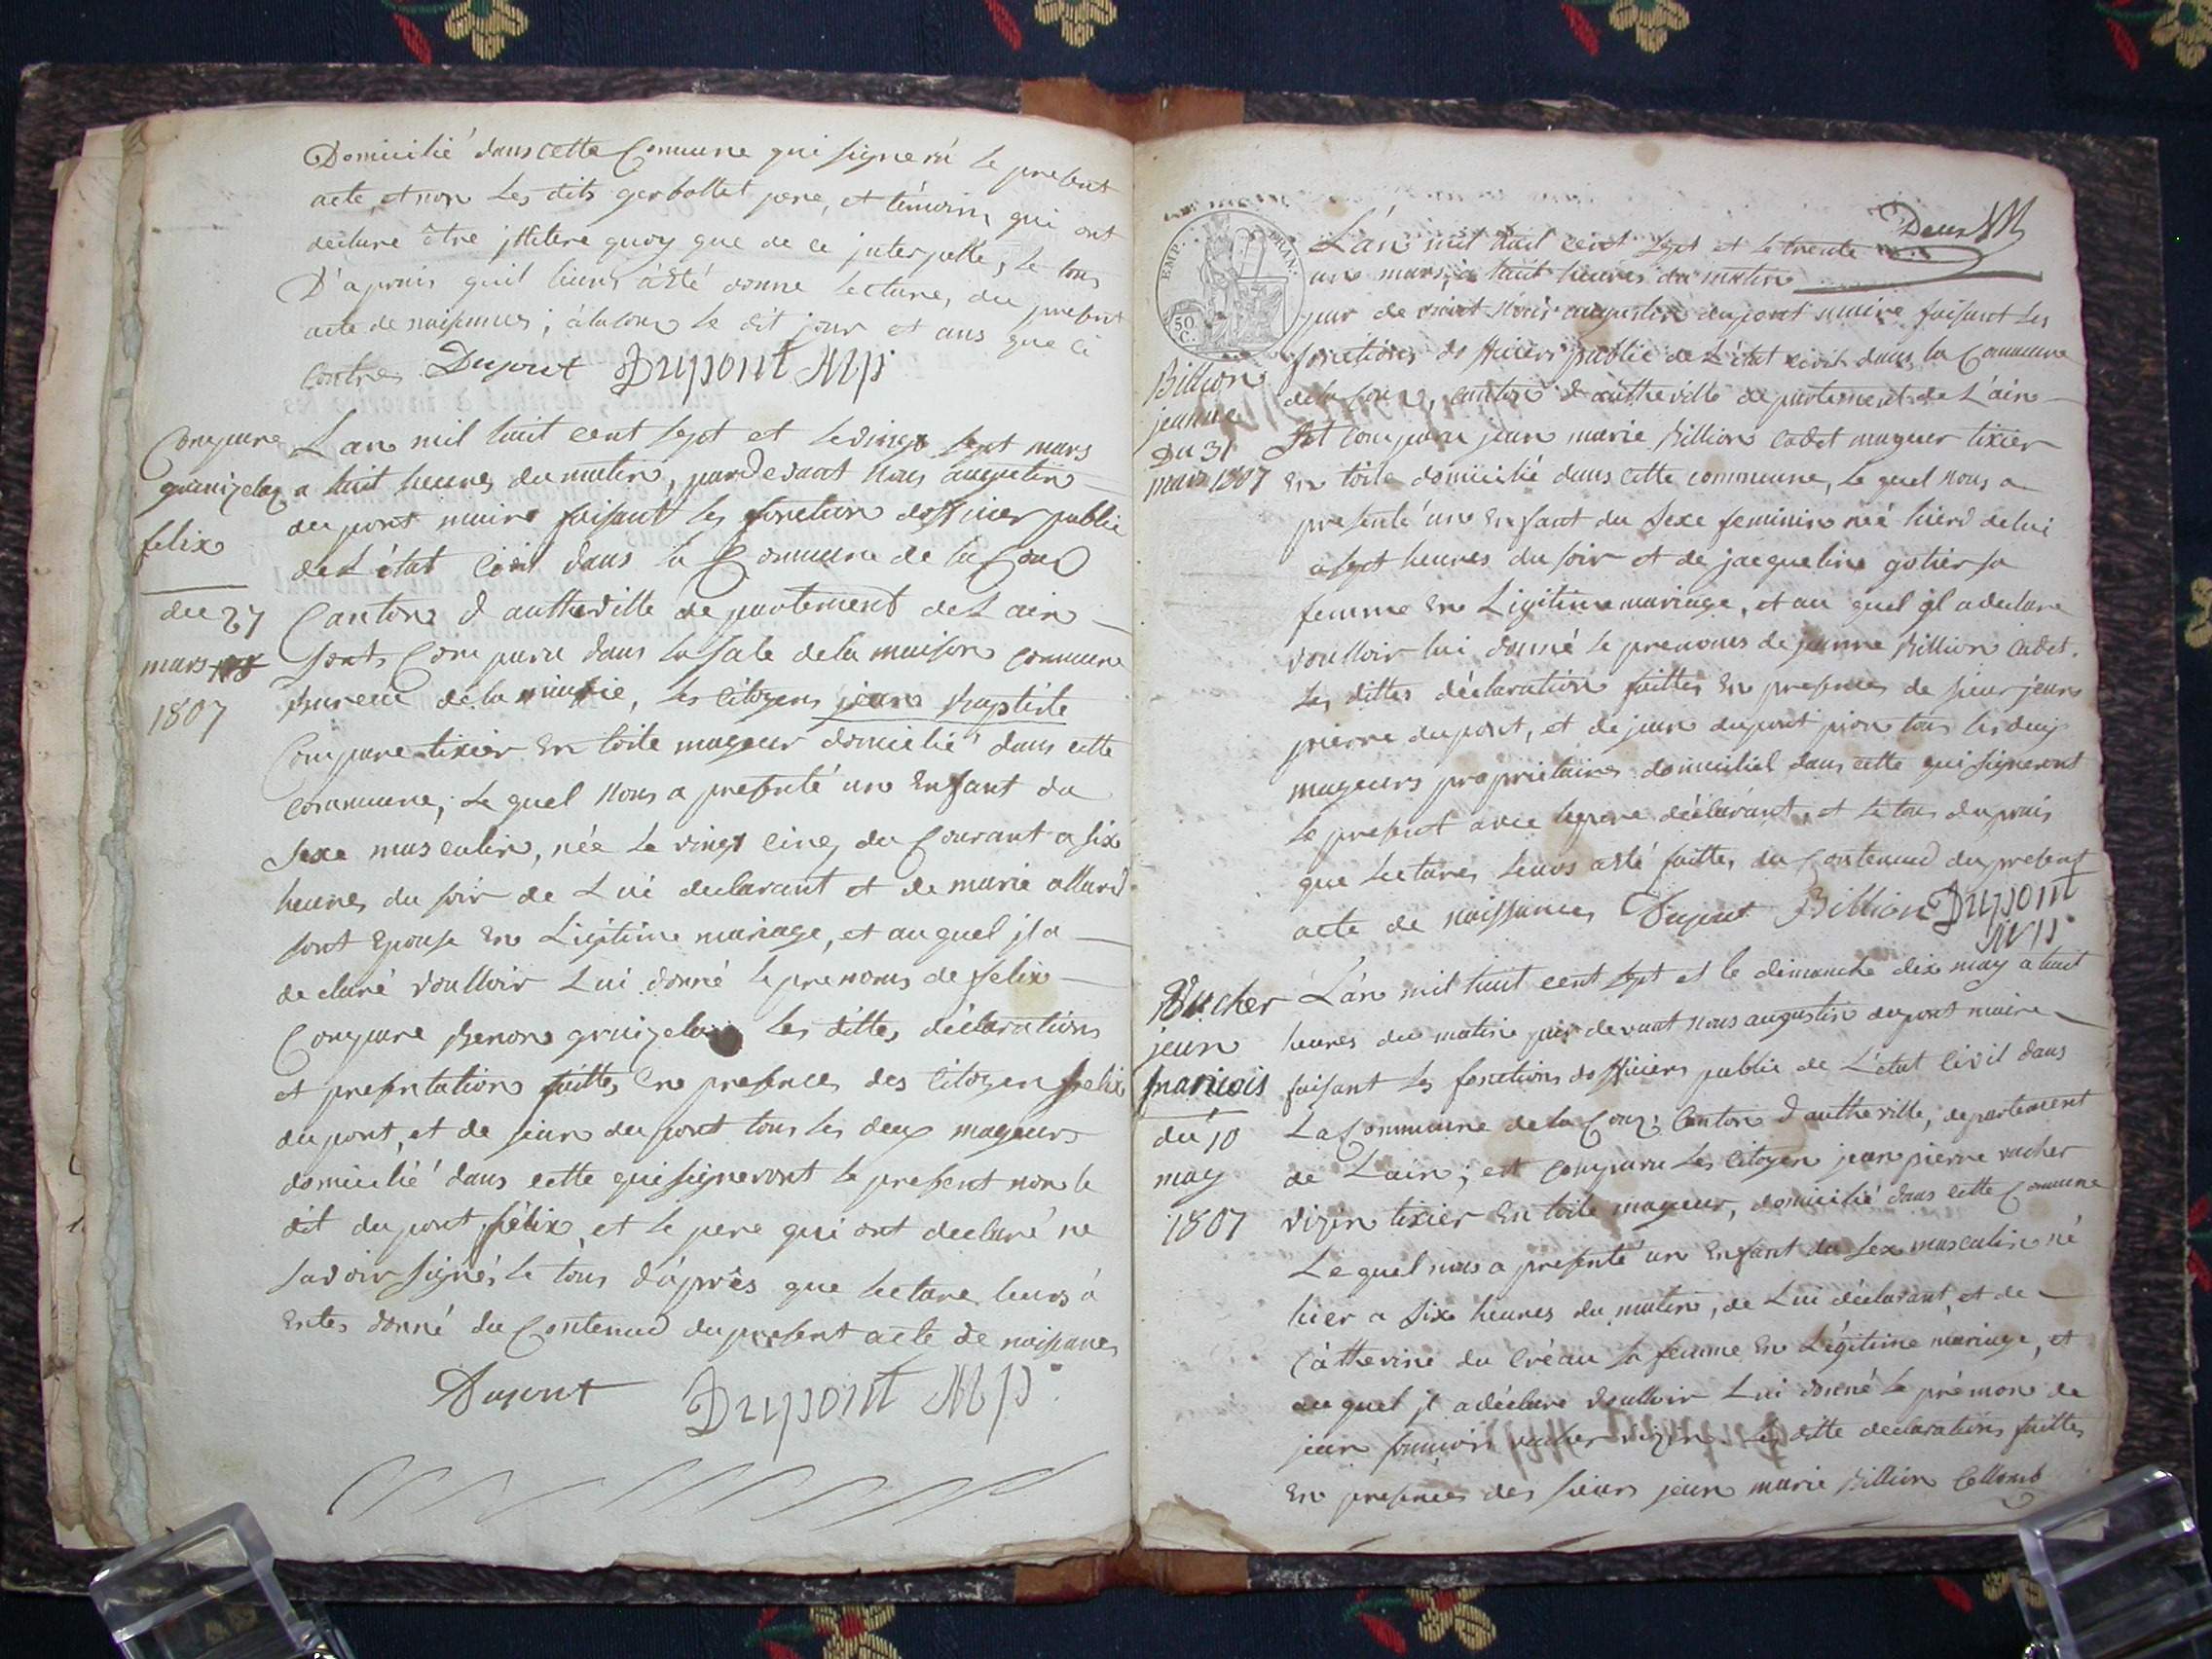 Domicilié dans cette Commune qui signera le present
acte, et non les dits gerbollet pere, et témoin qui ont
declare être jllitere quoy que de ce interpelle, le tous
D'aprais quil leurs a été donne lecture, du present
acte de naissances; à la Coux le dit jour et ans que ci
Contre Dupont Dupont Mp
Compare
granizelaz
felix
du 27
mars
1807
Lan mil huit cent sept et le vingt sept mars
a huit heures du matin, pardevant nous augustin
du pont maire faisant les fonction dofficier public
de L'état Civil dans la Commune de la Coux
Canton d'autheville departement de Lain
sont Comparu dans la sale de la maison commune
Bureau de la mairie, les Citoyens jean Baptiste
Compare tixier en toile mageur domicilié dans cette
commune, le quel nous a presenté un Enfant du
sexe masculin, née le vingt cinq du Courant a six
heures du soir de Lui declarant et de marie allard
sont Epouse En Ligitime mariage, et au quel jl a
declaré voulloir Lui donné le prenoms de felix
Compare Benon les dittes déclarations
et presentations faittes En presences des Citoyen felix
dupont, et de jean dupont tous les deux mageurs
domicilié dans cette qui signeront le present non le
dit dupont félix, et le pere qui ont declaré ne
savoir signés le tous d'après que lecture leurs à
Entes donné du Contenud du present acte de naissances
Dupont Dupont Mp
EMP. FRAN.
50 C.
Deux
L'an mil huit cent sept et le trente
un mars, a huit heures du matin
par de vant nous augustin dupont maire faisant les
fonctions dofficiers public de L'état civil dans la Commune
de la Coux, canton d'autheville departement de L'ain
Billion
jeanne
Du 31
mars 1807
Est comparu jean marie Billion Cadet mageur tixier
En toile domicilié dans cette commune, le quel nous a
presenté un enfant du sexe feminin née hierd de lui
a sept heures du soir et de jacqueline gotier sa
femme En Ligitime mariage, et au quel jl a declare
voulloir lui donné le prenoms de jeanne Billion Cadet.
Les dittes déclaration faittes En presences de sieur jean
pierre dupont, et de jean dupont pion tous les deux
mageurs propriétaires domiciliés dans cette qui signeront
le present avec le pere déclarant, et le tous du prais
que lectures leurs a été faittes du Contenud du present
acte de naissances Dupont Billion Dupont
Mp
Vucher
jean
francois
du 10
may
1807
L'an mil huit cent sept et le dimanche dix may a huit
heures du matin par devant nous augustin dupont maire
faisant les fonctions dofficiers public de L'état Civil dans
La Commune de la Coux, Canton d'autheville, departement
de Lain; est comparu les Citoyen jean pierre vucher
vizin tixier En toile mageur, domicilié dans cette Commune
Le quel nous a presenté un Enfant du sex masculin né
hier a six heures du matin, de Lui déclarant, et de
Câtherine du Créau sa femme En Légitime mariage, et
au quel jl a déclare voulloir Lui donné le prémon de
jean françois vucher vizin. Les ditte declarations faittes
En presences des sieurs jean marie Billion Collomb